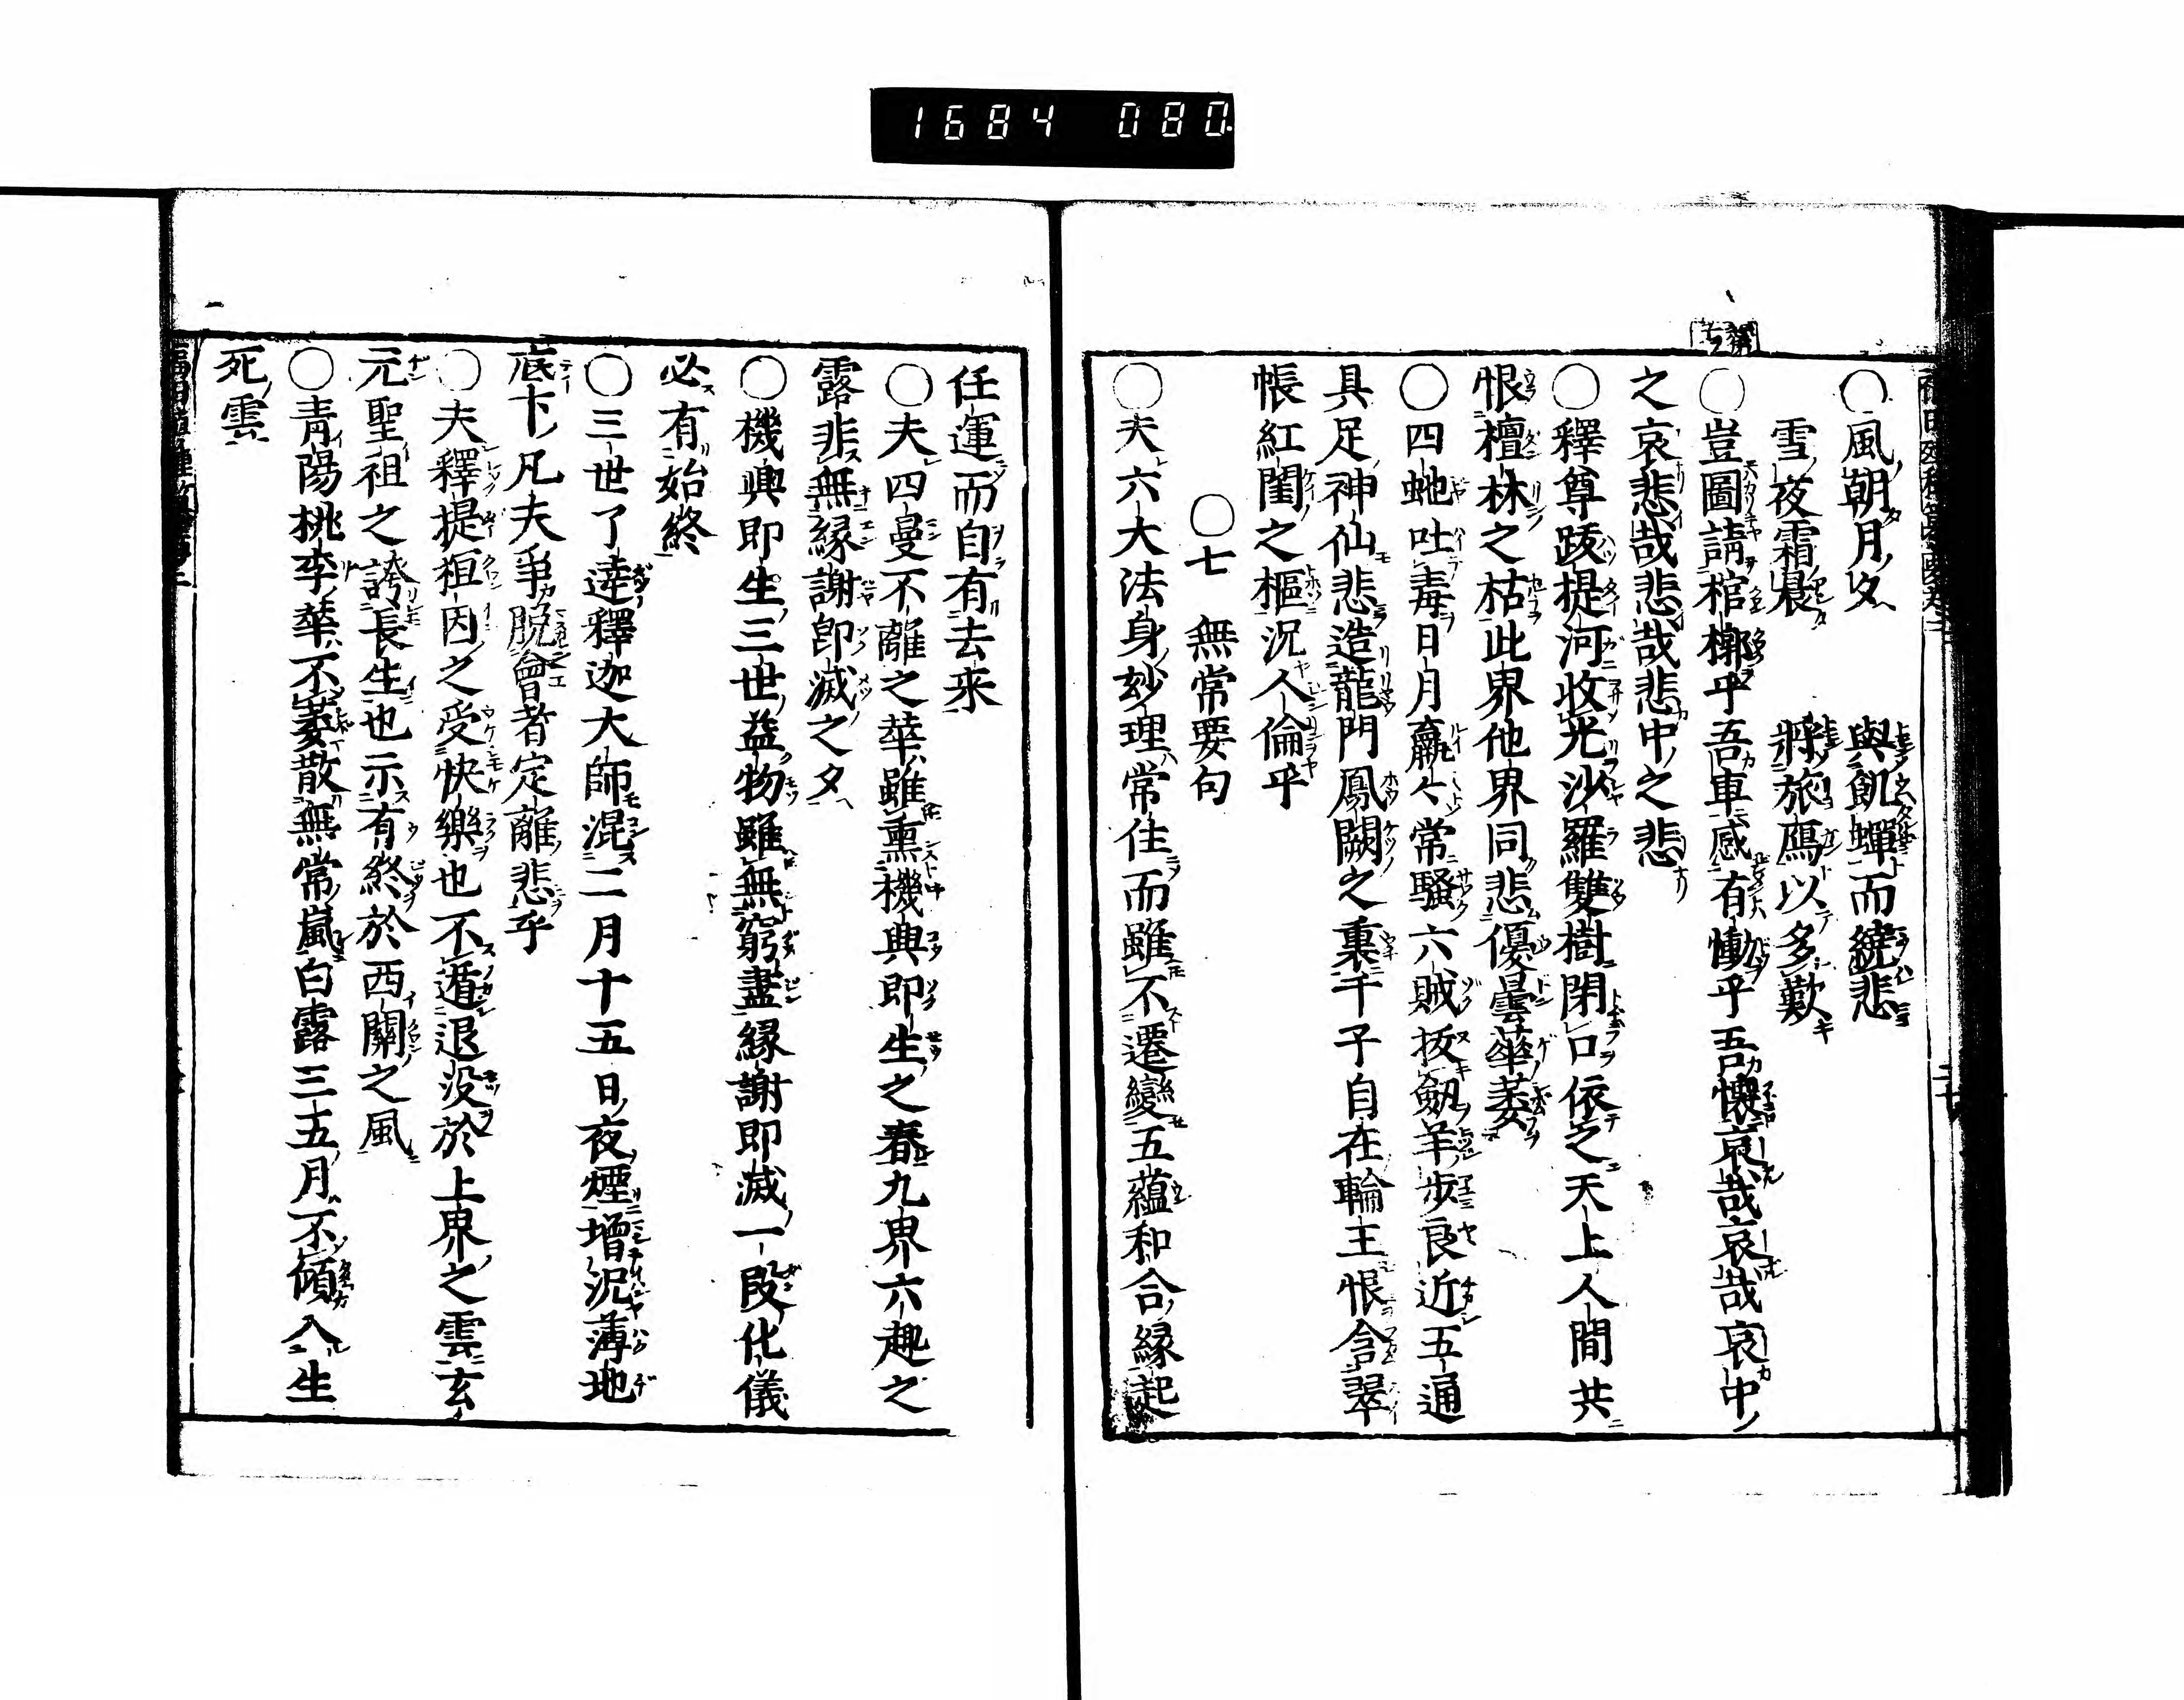 1684 080
○風朝月夕 與飢蟬而繞悲
雪夜霜晨 將旅鴈以多歎
○豈圖請棺槨乎吾車感有慟乎吾懐哀哉哀哉哀中
之哀悲哉悲哉悲中之悲
○釋尊跋提河收光沙羅雙樹閉口依之天上人間共
恨檀林之枯此界他界同悲優曇華萎
○四虵吐毒日月羸々常騷六賊抜劔羊歩良近五通
具足神仙悲造龍門鳳闕之裏千子自在輪王恨含翠
帳紅閨之樞況人倫乎
○七 無常要句
○夫六大法身妙理常住而雖不遷變五蘊和合縁起
任運而自有去来
○夫四曼不離之華雖熏機興即生之春九界六趣之
露非無縁謝即滅之夕
○機興即生三世益物雖無窮盡縁謝即滅一段化儀
必有始終
○三世了達釋迦大師混二月十五日夜煙増況薄地
底下凡夫争脱會者定離悲乎
○夫釋提桓因之受快樂也不遁退没於上界之雲玄
元聖祖之誇長生也示有終於西關之風
○青陽桃李華不萎散無常嵐白露三五月不傾入生
死雲